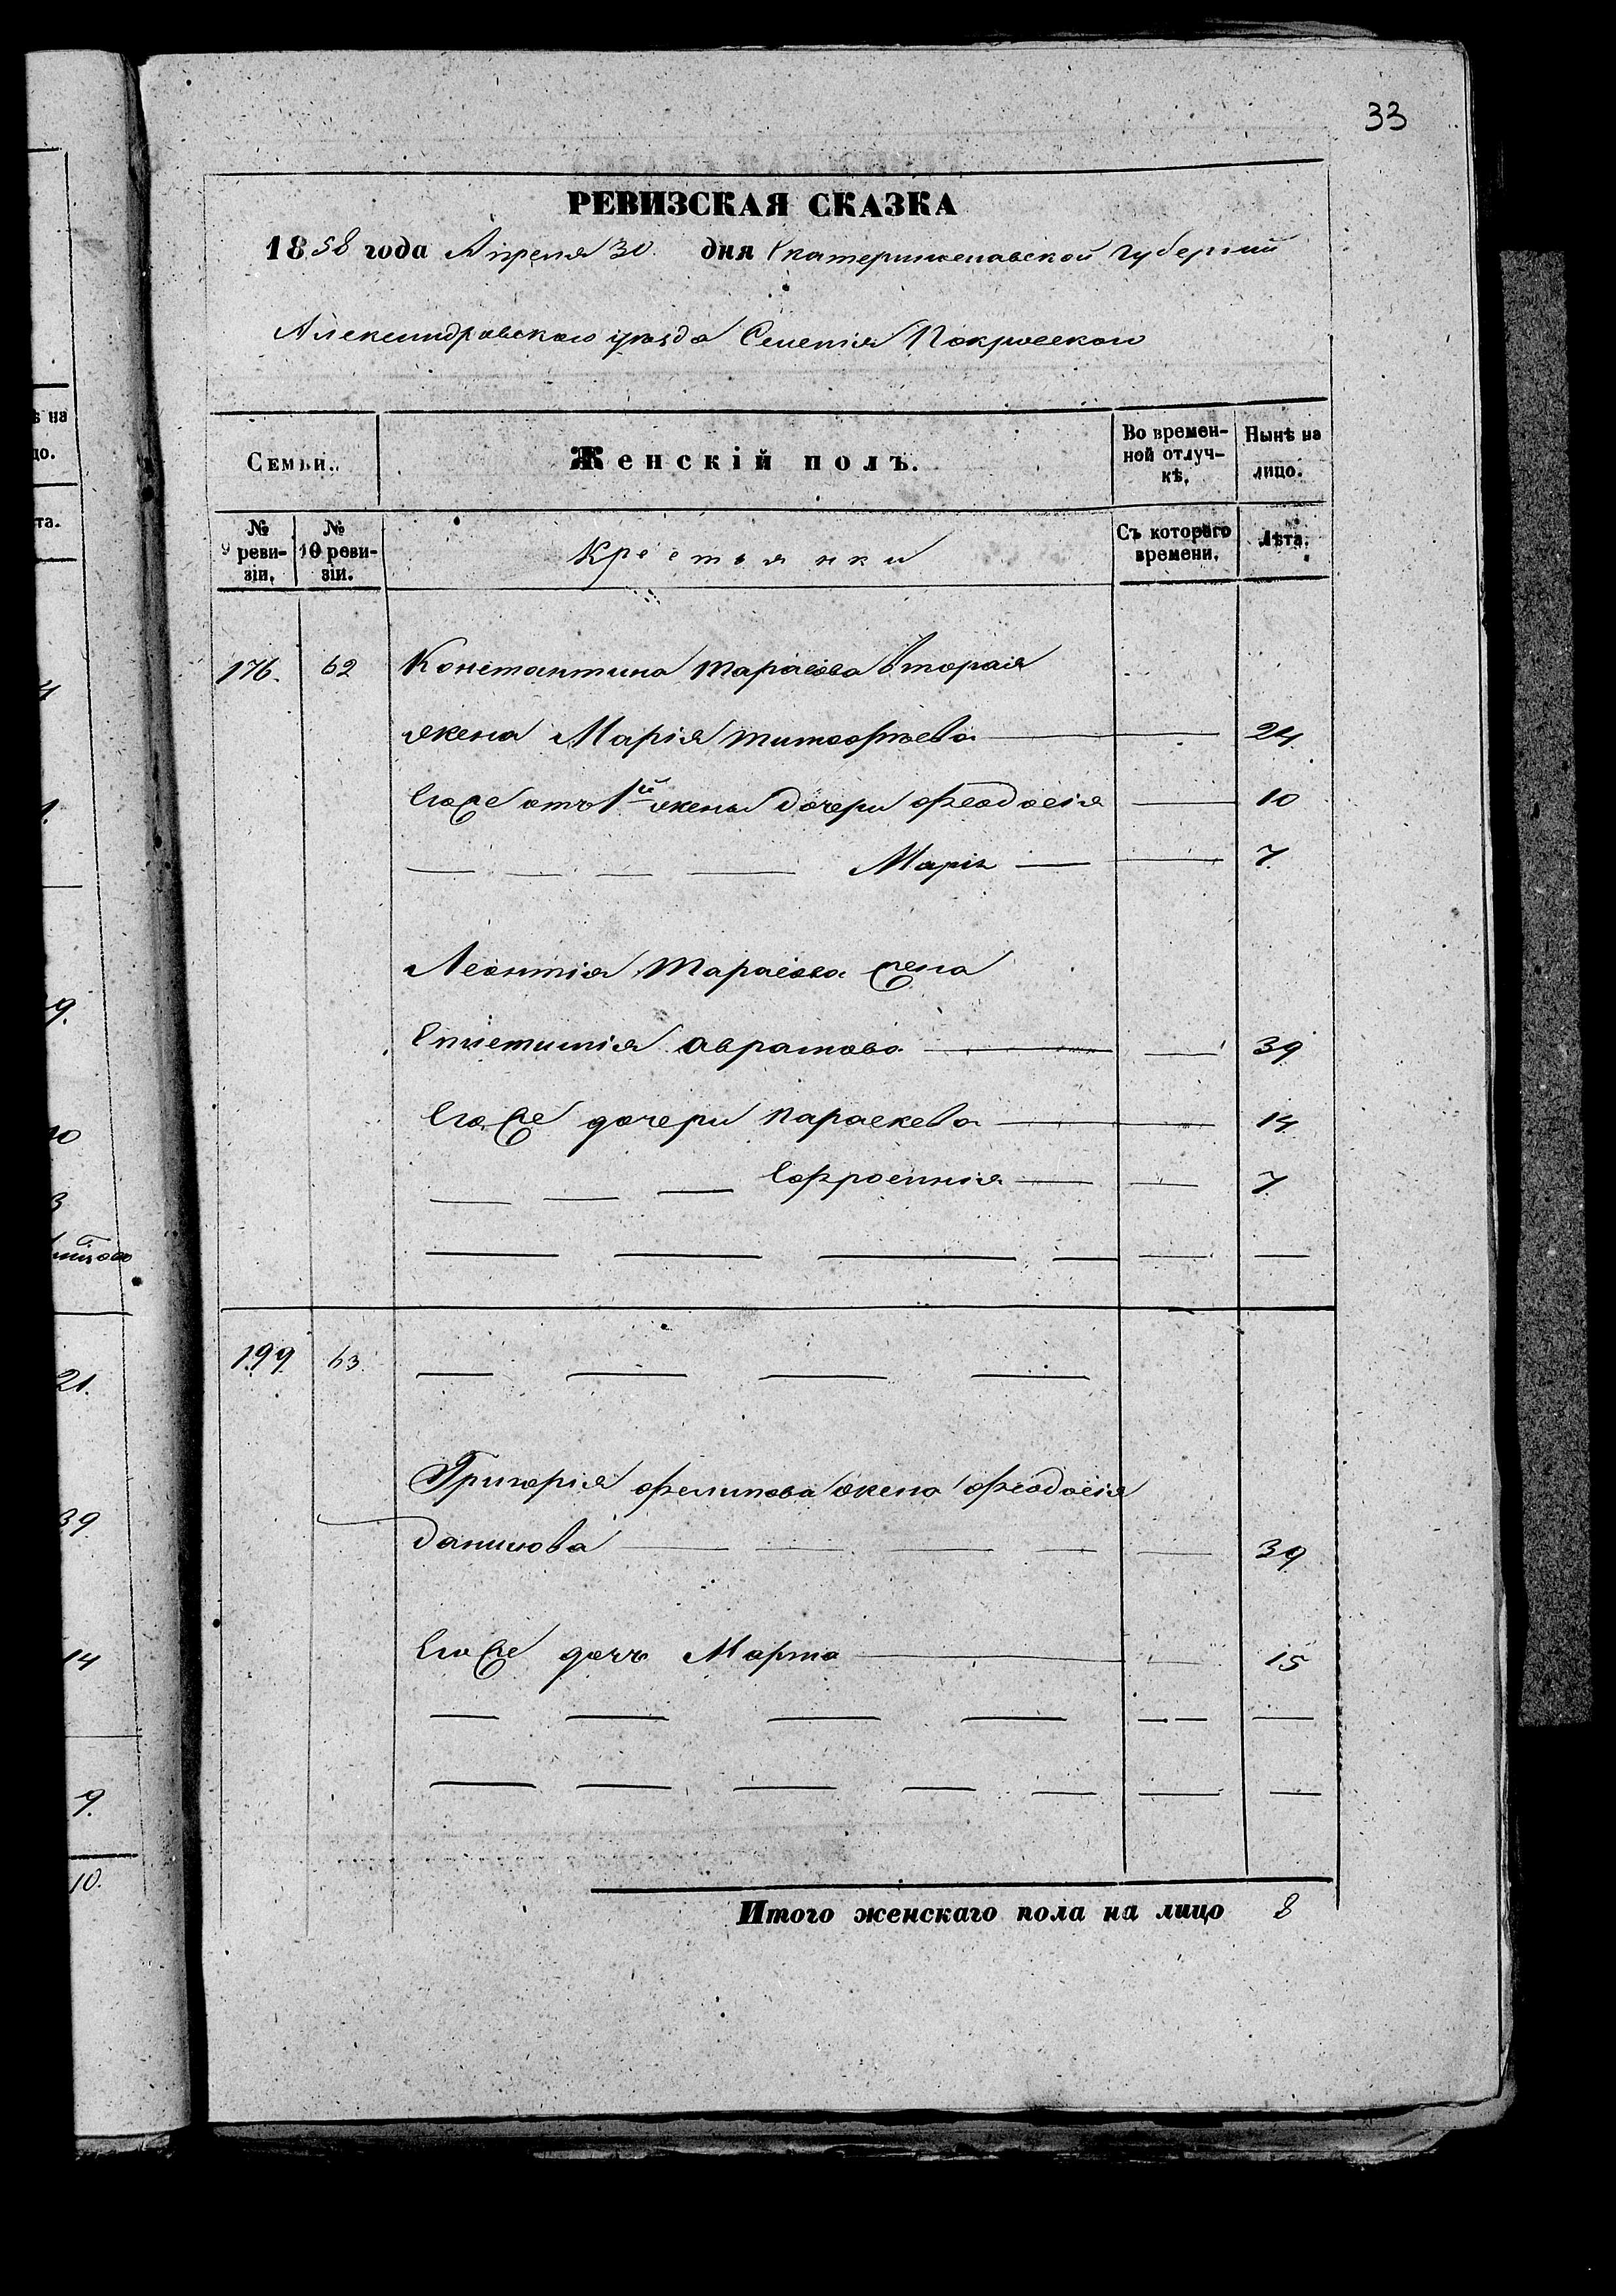 33
РЕВИЗСКАЯ СКАЗКА
1858 года Апреля 30. дня Екатеринославской Губернии
Александровского уезда Селения Покровского
Семьи.
Женскій полъ.
Во времен-
ной отлуч-
кѣ.
Нынѣ на
лицо.
№
9 реви-
зіи.
№
10 реви-
зіи.
Крестьянки
Съ котораго
времени.
Лѣта.
176. 62 Константина Тарасова вторая
жена Марія Тимофѣева 24.
Его же отъ 1й жены дочери Феодосія 10
Марія 7.
Леонтія Тарасова жена
Епистимія Аврамова 39.
Его же дочери Параскева 14.
Ефросинія 7.
199. 63.
Григорія Филипова жена Феодосія
Данилова 39.
Его же дочь Марта 15
Итого женскаго пола на лицо 8
ѣ на
цо.
та.
4
1.
9.
10
3
21.
39.
14
9.
10.